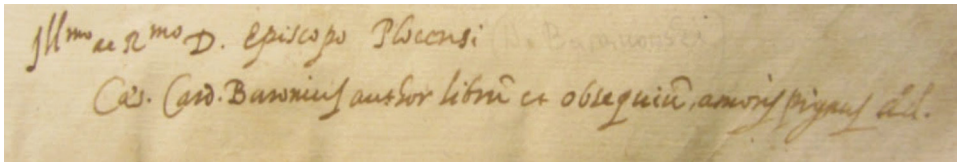 Ill^mo ac R^mo D. Episcopo Plocensi
Cæs. Card. Baronius author librū et obsequiū, amoris pignus